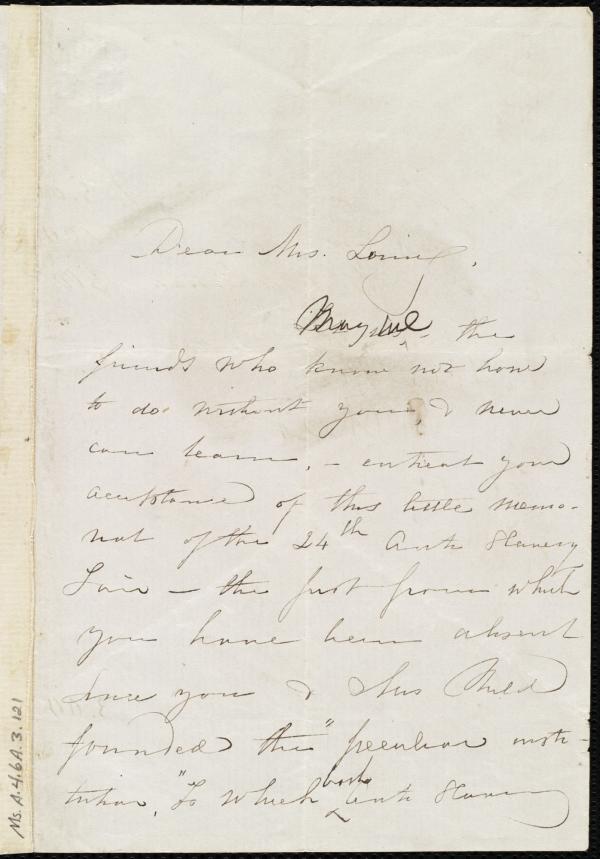 Dear Mrs. Loring,
May we - the
friends who know not how
to do without you, & never
can learn, - entreat your
acceptance of this little memo-
rial of the 24th Anti Slavery
Fair - the first from which
you have been absent
since you & Mrs Child
founded this "peculiar insti-
tution," to which both Anti Slavery
Ms. A.4.6A.3.121